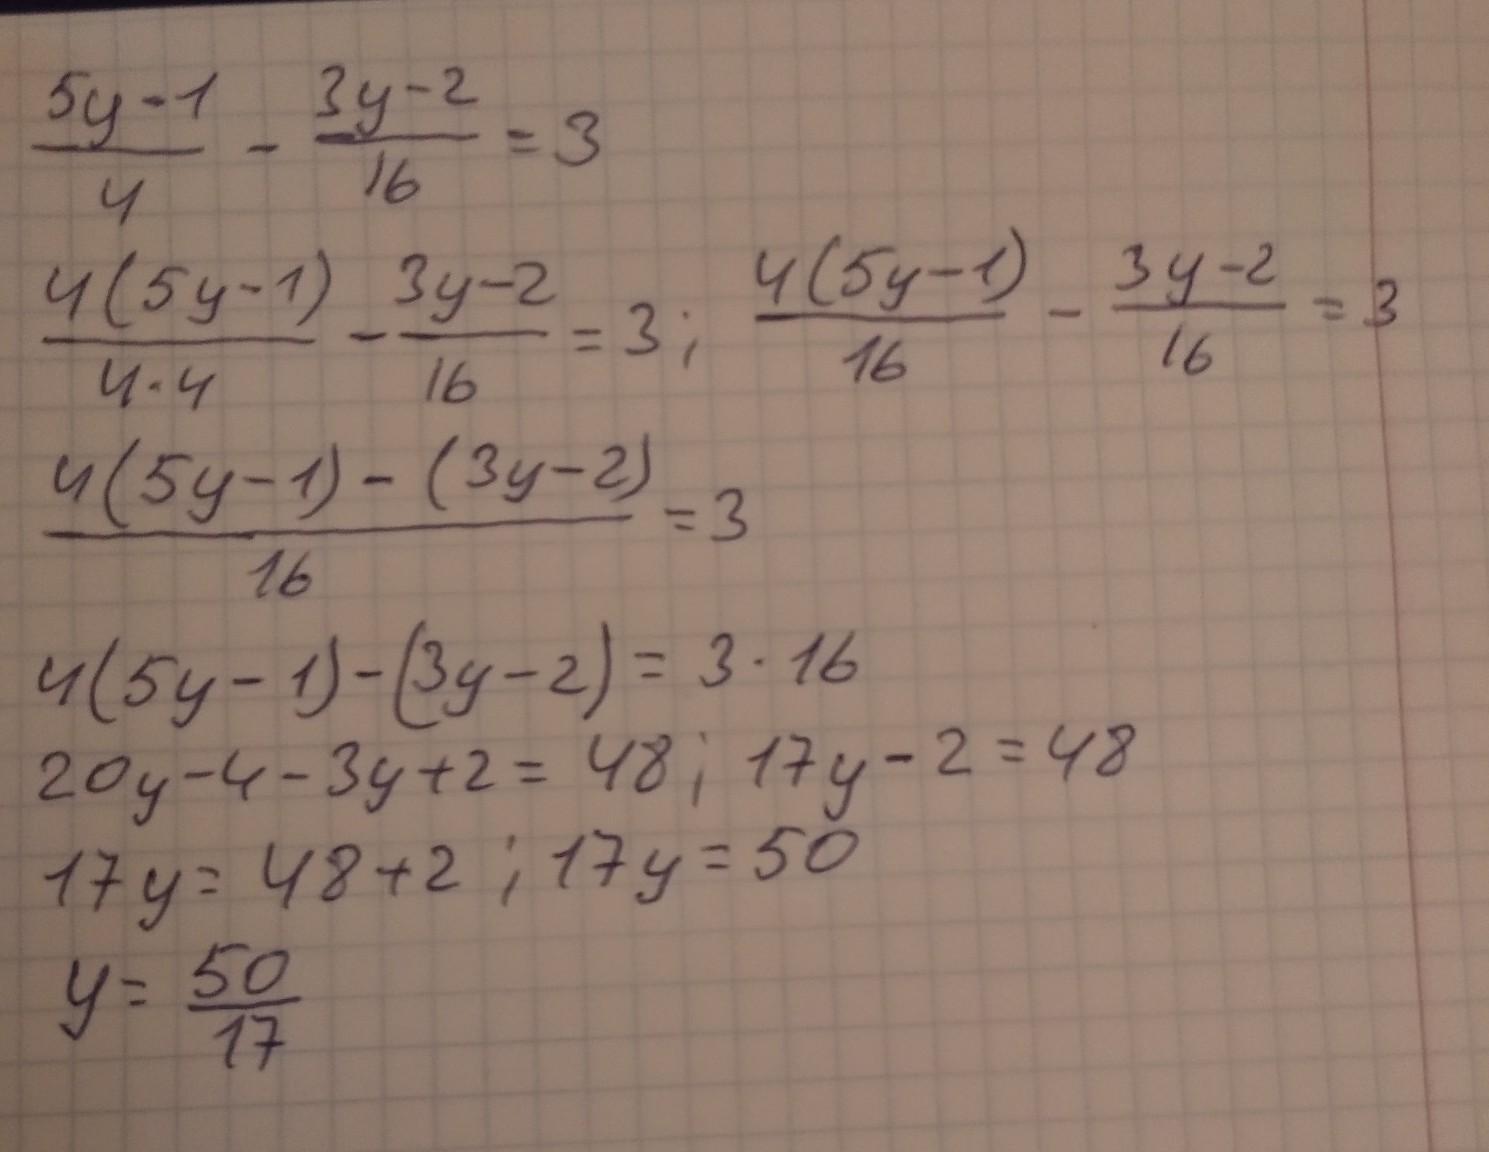 (5y-1)/4 - (3y-2)/16 = 3
4(5y-1)/(4·4) - (3y-2)/16 = 3; 4(5y-1)/16 - (3y-2)/16 = 3
(4(5y-1)-(3y-2))/16 = 3
4(5y-1)-(3y-2) = 3·16
20y-4-3y+2 = 48; 17y-2 = 48
17y = 48+2; 17y = 50
y = 50/17